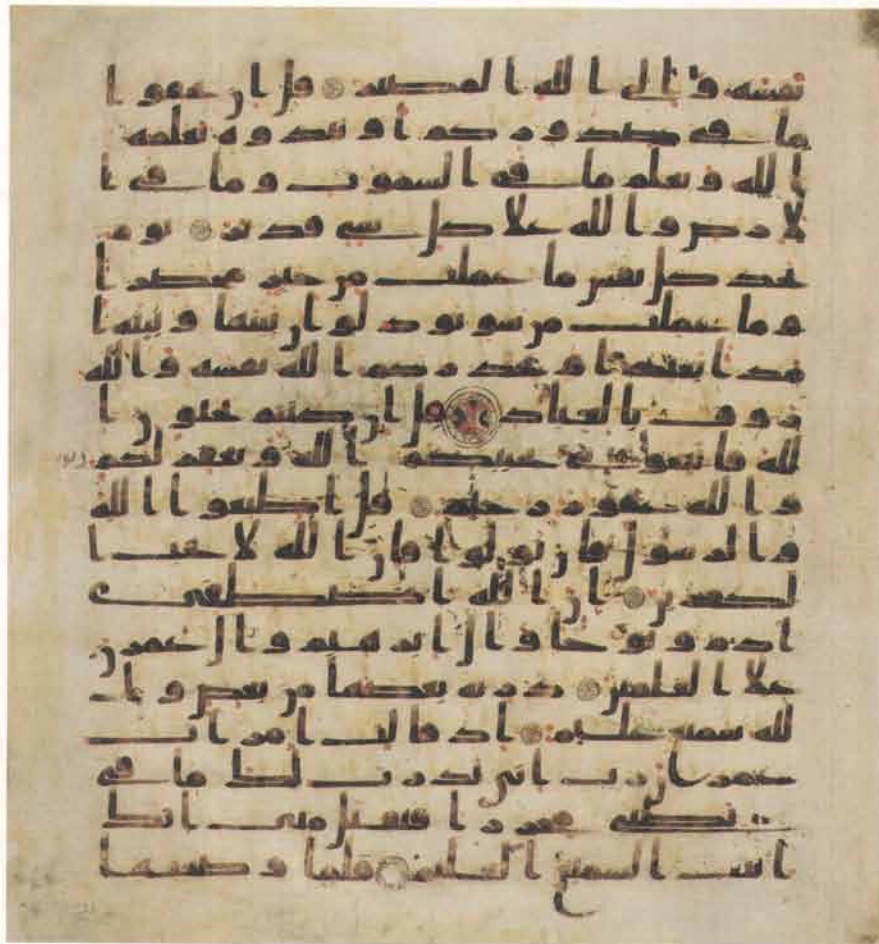 نفسه والى الله المصير قل ان تخفوا
ما في صدوركم او تبدوه يعلمه
الله ويعلم ما في السموت وما في ا
لارض والله علا كل شي قدير يوم
تجد كل نفس ما عملت من خير محضرا
وما عملت من سو تود لو ان بينها وبينه ا
مدا بعيدا ويحذركم الله نفسه والله
روف بالعباد قل ان كنتم تحبون ا
لله فاتبعوني يحببكم الله ويغفر لكم
والله غفور رحيم قل اطيعوا الله
والرسول فان تولوا فان الله لا يحب ا
لكفرين ان الله اصطفى
ادم ونوحا وال ابرهيم وال عمرن
علا العلمين ذرية بعضها من بعض وا
لله سميع عليم اذ قالت امرات
عمرن رب اني نذرت لك ما في
بطني محررا فتقبل مني انك
انت السميع العليم فلما وضعتها